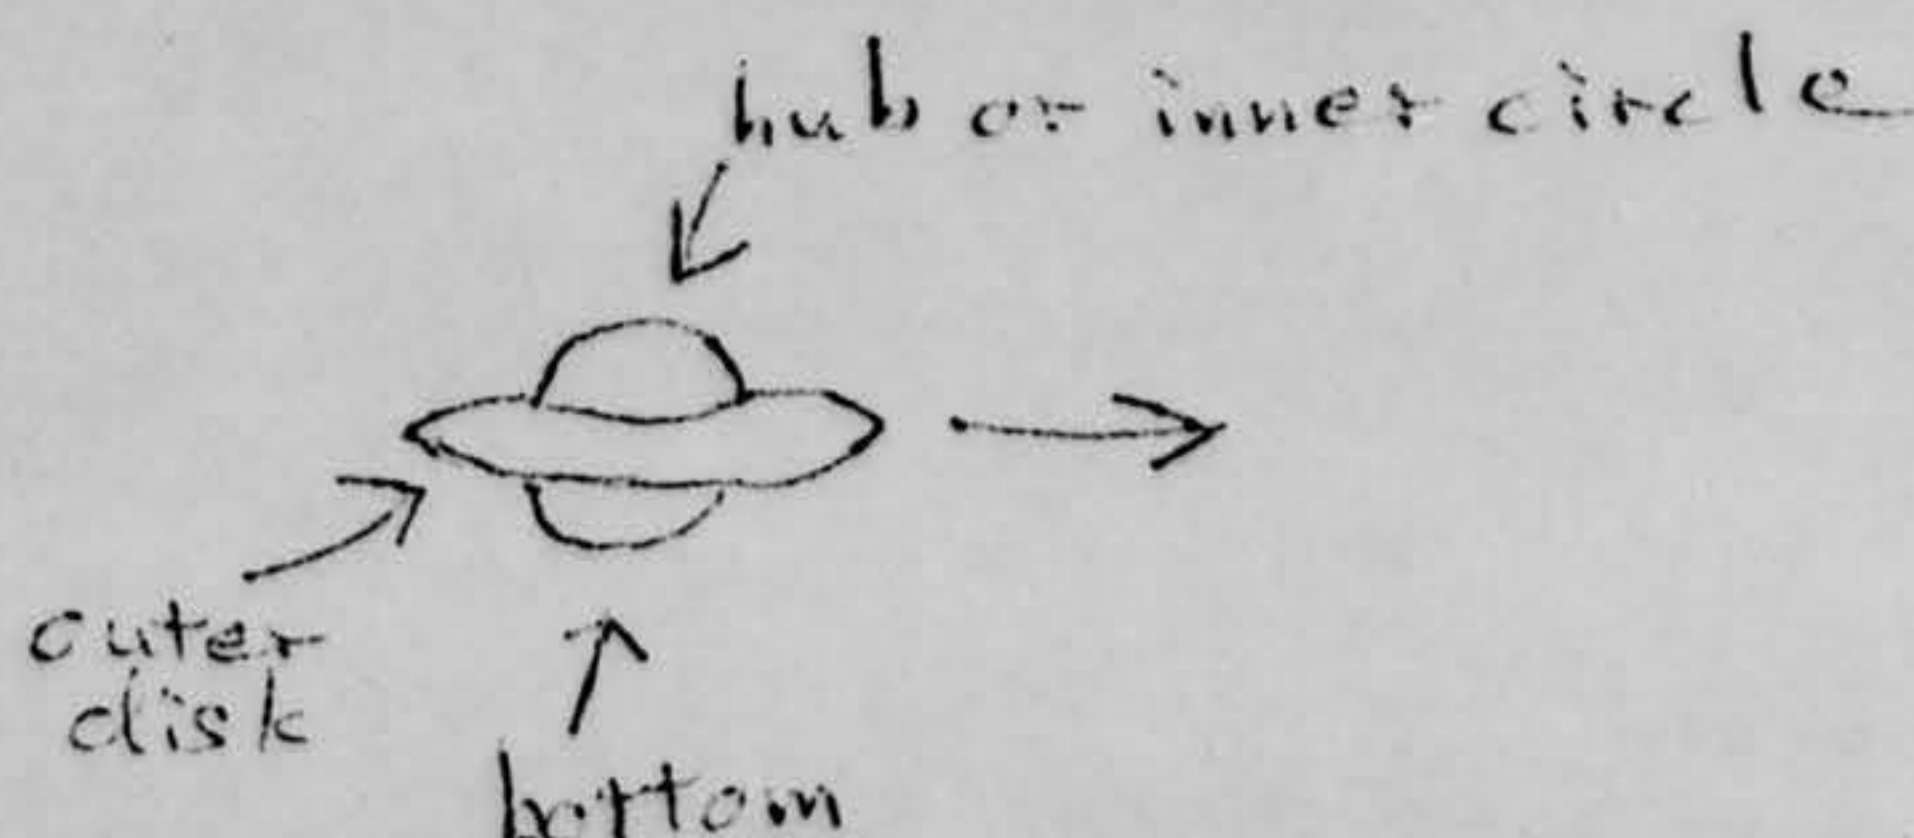 hub or inner circle
outer
disk
bottom